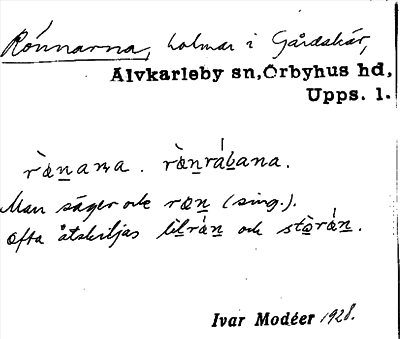 Rönnarna, holmar i Gårdskär,
Älvkarleby sn, Örbyhus hd,
Upps. l.
rö̀n̲arna. rö̀n̲rábana.
Man säger ock rön̲ (sing.).
Ofta åtskiljas lìl̲rán̲ och stòrán̲.
Ivar Modéer 1928.